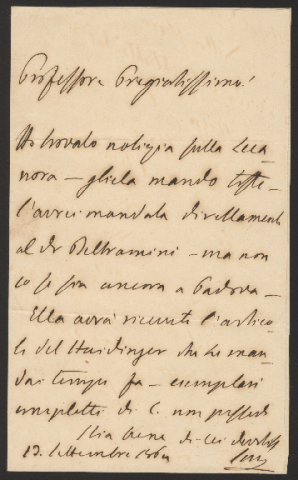 Professore Pregiatissimo!
Ho trovato notizia sulla Leca
nora – gliela mando tosto –
l'avrei mandata direttamente
al dr Beltramini – ma non
so se sia ancora a Padova –
Ella avrà ricevuti l'artico
lo del Haidinger che Le man
dai tempo fa – esemplari
completti di C. non possedo
Stia bene di Lei
13 Settembre 1864